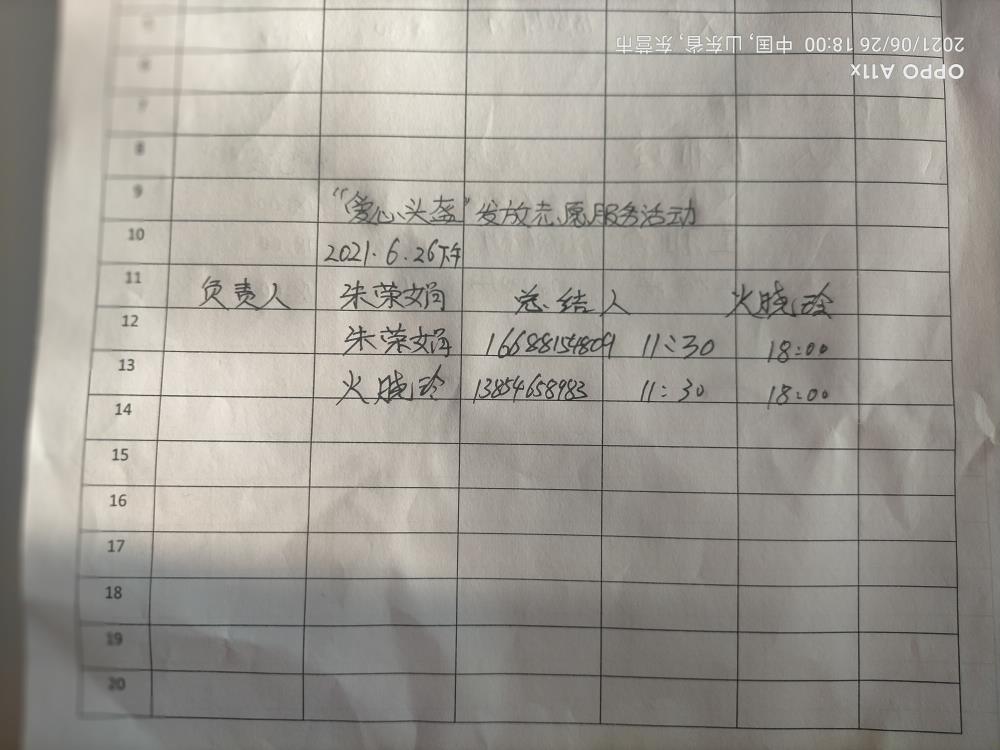 2021/06/26 18:00 中国, 山东省, 东营市
OPPO A11x
6
7
8
9
“爱心头盔”发放志愿服务活动
10
2021.6.26下午
11
负责人 朱荣娟 总结人 火晓玲
12
朱荣娟 16688154809 11:30 18:00
13
火晓玲 13854658983 11:30 18:00
14
15
16
17
18
19
20